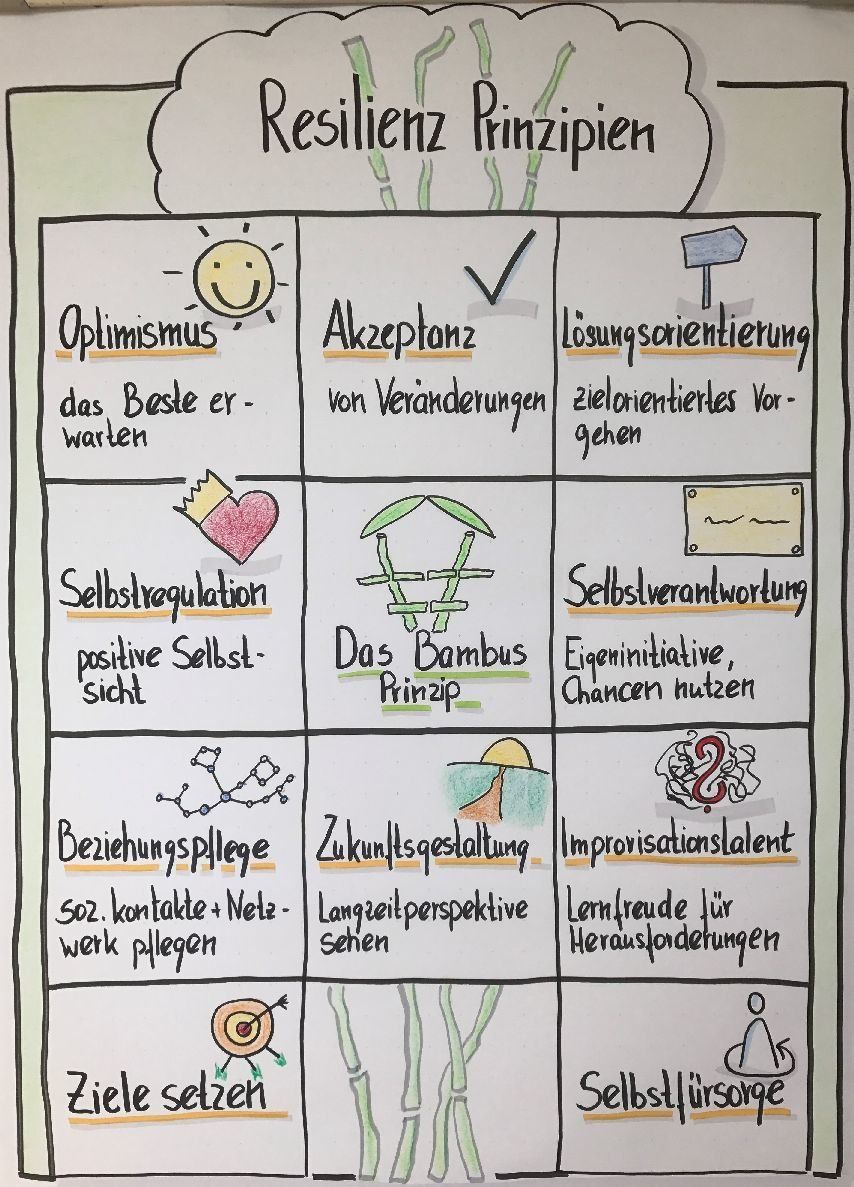 Resilienz Prinzipien
Optimismus
das Beste er-
warten
Akzeptanz
von Veränderungen
Lösungsorientierung
zielorientiertes Vor-
gehen
Selbstregulation
positive Selbst-
sicht
Das Bambus
Prinzip
Selbstverantwortung
Eigeninitiative,
Chancen nutzen
Beziehungspflege
soz. kontakte + Netz-
werk pflegen
Zukunftsgestaltung
Langzeitperspektive
sehen
Improvisationstalent
Lernfreude für
Herausforderungen
Ziele setzen
Selbstfürsorge